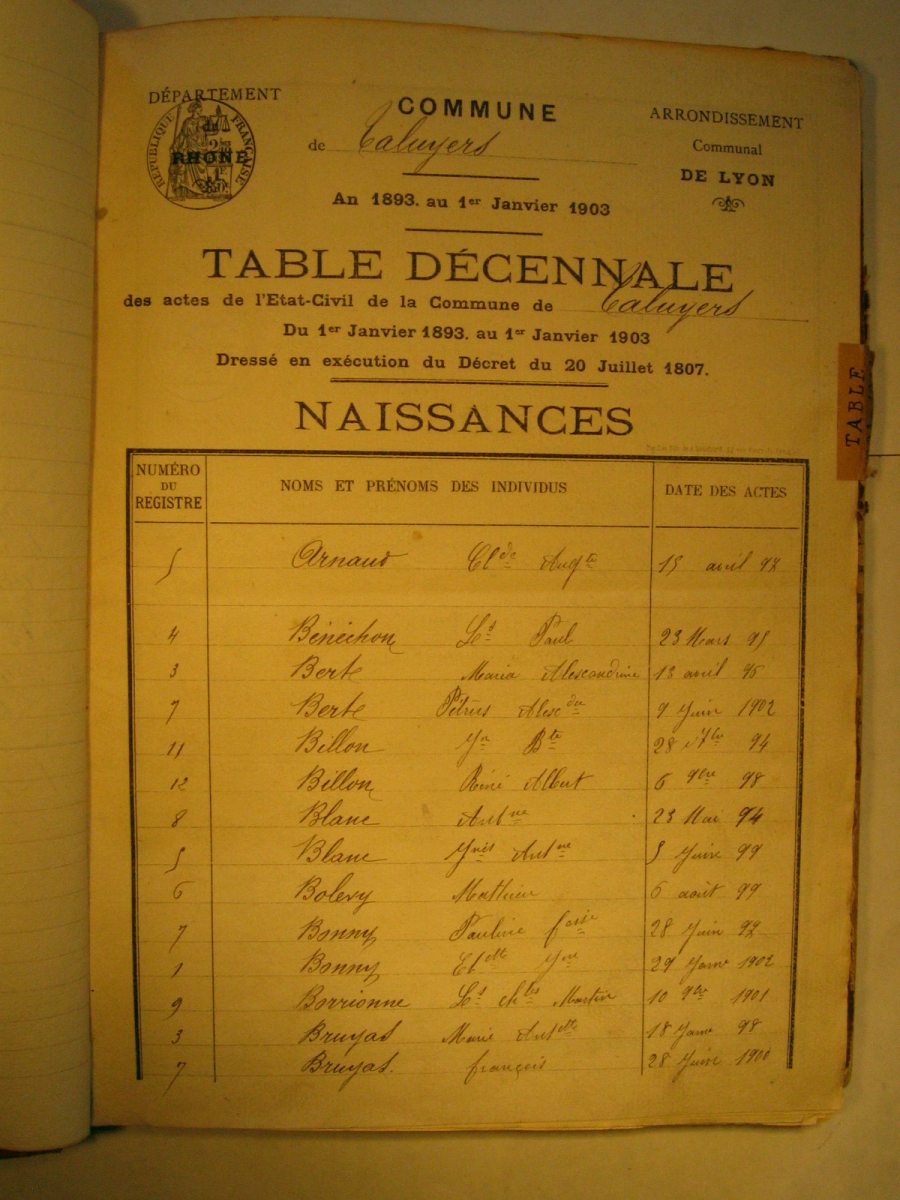 DÉPARTEMENT
du
RHÔNE
RÉPUBLIQUE FRANÇAISE
COMMUNE
de Taluyers
ARRONDISSEMENT
Communal
DE LYON
An 1893. au 1er Janvier 1903
TABLE DÉCENNALE
des actes de l'Etat-Civil de la Commune de Taluyers
Du 1er Janvier 1893. au 1er Janvier 1903
Dressé en exécution du Décret du 20 Juillet 1807.
TABLE
NAISSANCES
NUMÉRO DU REGISTRE NOMS ET PRÉNOMS DES INDIVIDUS DATE DES ACTES
5 Arnaud Clde Augte 15 avril
4 Bénéchon Ls Paul 23 Mars 95
3 Berte Maria Alexandrine 13 avril
7 Berte Pétrus Alexdre 9 Juin 1902
11 Billon Jn Bte 28 7bre 94
12 Billon Réné Albert 6 9bre 98
8 Blanc Antne 23 Mai 94
5 Blanc Antne 5 Juin 99
6 Mathieu 6 août 99
7 Bonny Pauline 28 Juin
1 Bonny Jne 29 Janv 1902
9 Borrionne Ls Chles Martin 10 9bre 1901
3 Bruyas Marie Antette 18 Janv 98
7 Bruyas. françois 28 Juin 1900